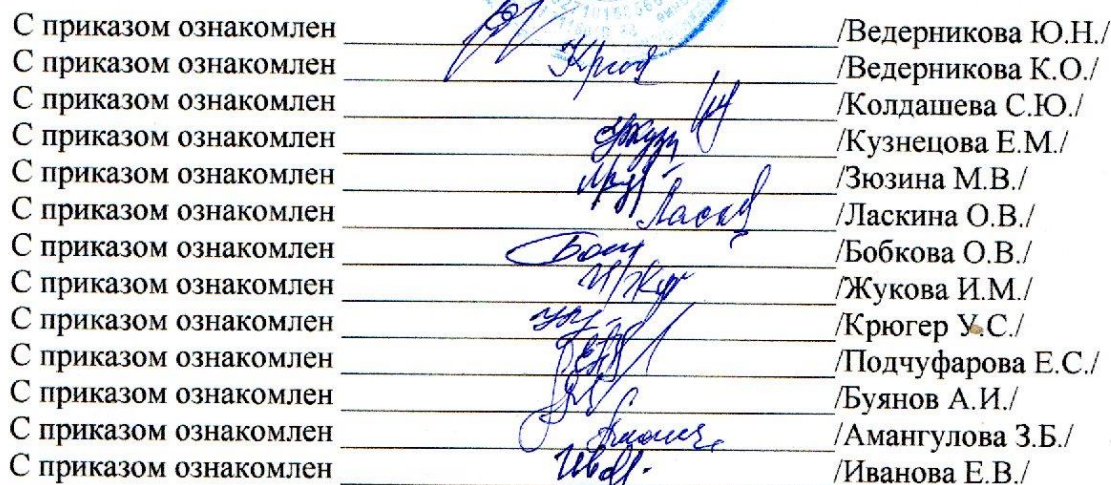 С приказом ознакомлен /Ведерникова Ю.Н./
С приказом ознакомлен /Ведерникова К.О./
С приказом ознакомлен /Колдашева С.Ю./
С приказом ознакомлен /Кузнецова Е.М./
С приказом ознакомлен /Зюзина М.В./
С приказом ознакомлен /Ласкина О.В./
С приказом ознакомлен /Бобкова О.В./
С приказом ознакомлен /Жукова И.М./
С приказом ознакомлен /Крюгер У.С./
С приказом ознакомлен /Подчуфарова Е.С./
С приказом ознакомлен /Буянов А.И./
С приказом ознакомлен /Амангулова З.Б./
С приказом ознакомлен /Иванова Е.В./